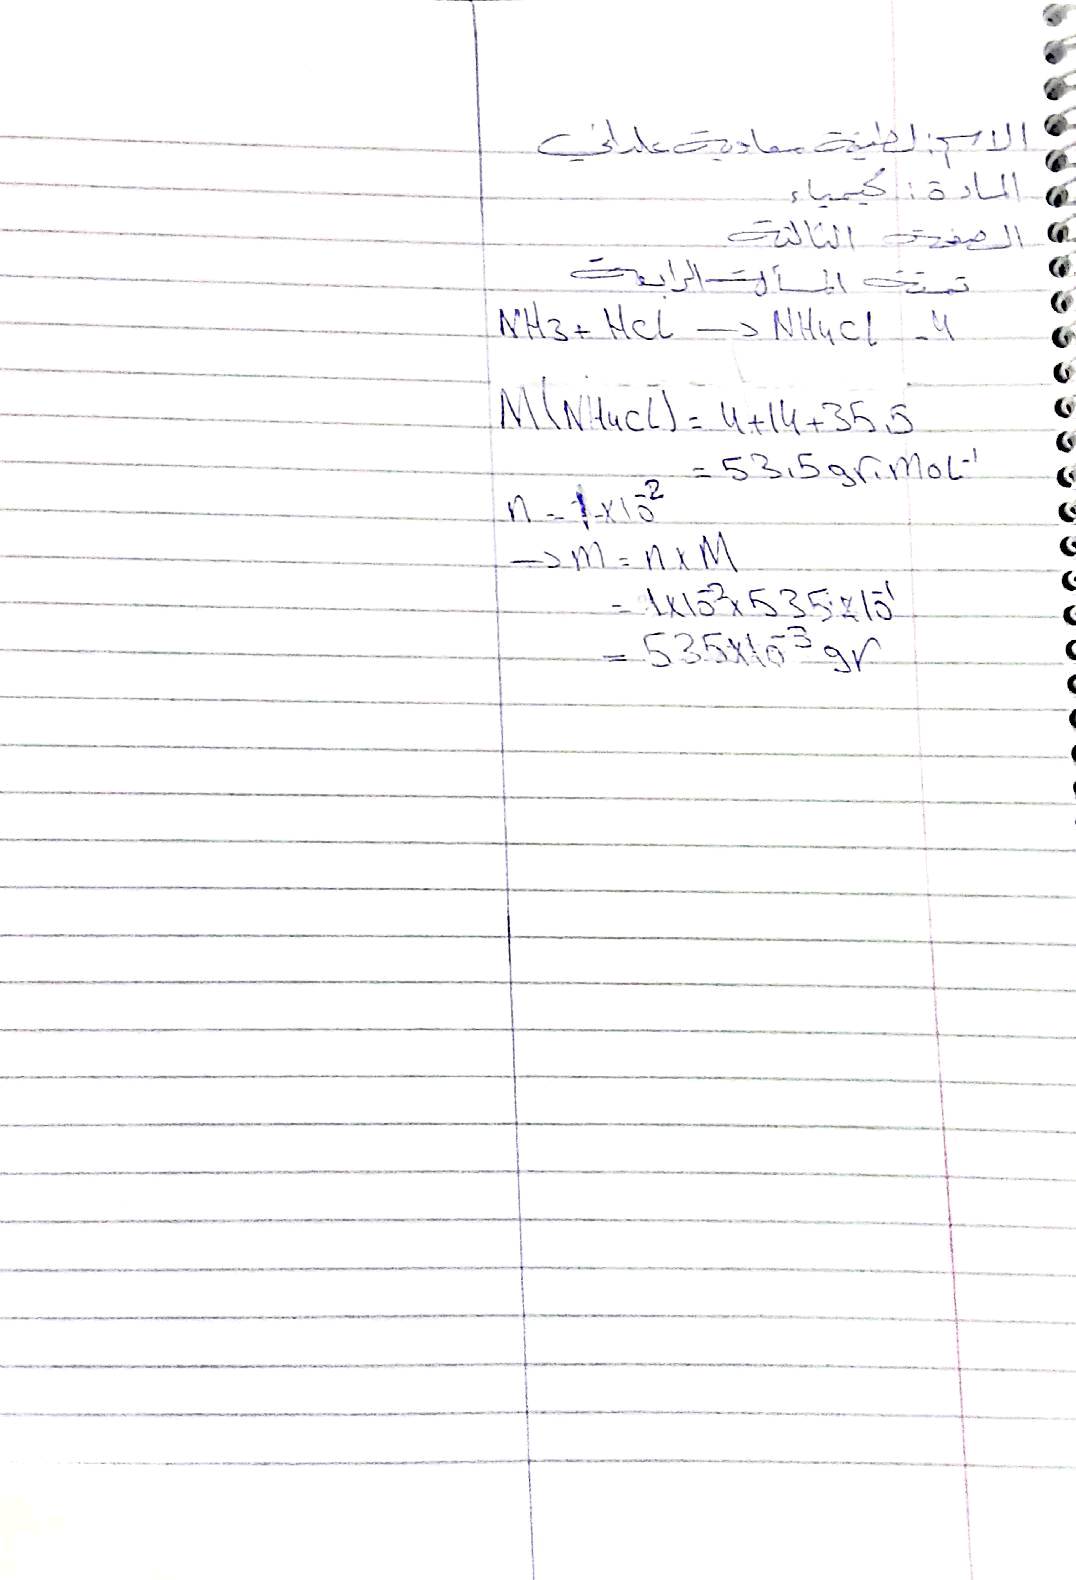 الاسم: لطيفة معاوية علداني
المادة: كيمياء
الصفحة الثالثة
تمتة المسألة الرابعة
NH3 + HCl → NH4Cl -4
M(NH4Cl) = 4+14+35.5
= 53.5 gr.mol⁻¹
n = 1×10⁻²
→ m = n×M
= 1×10⁻²×535×10⁻¹
= 535×10⁻³ gr